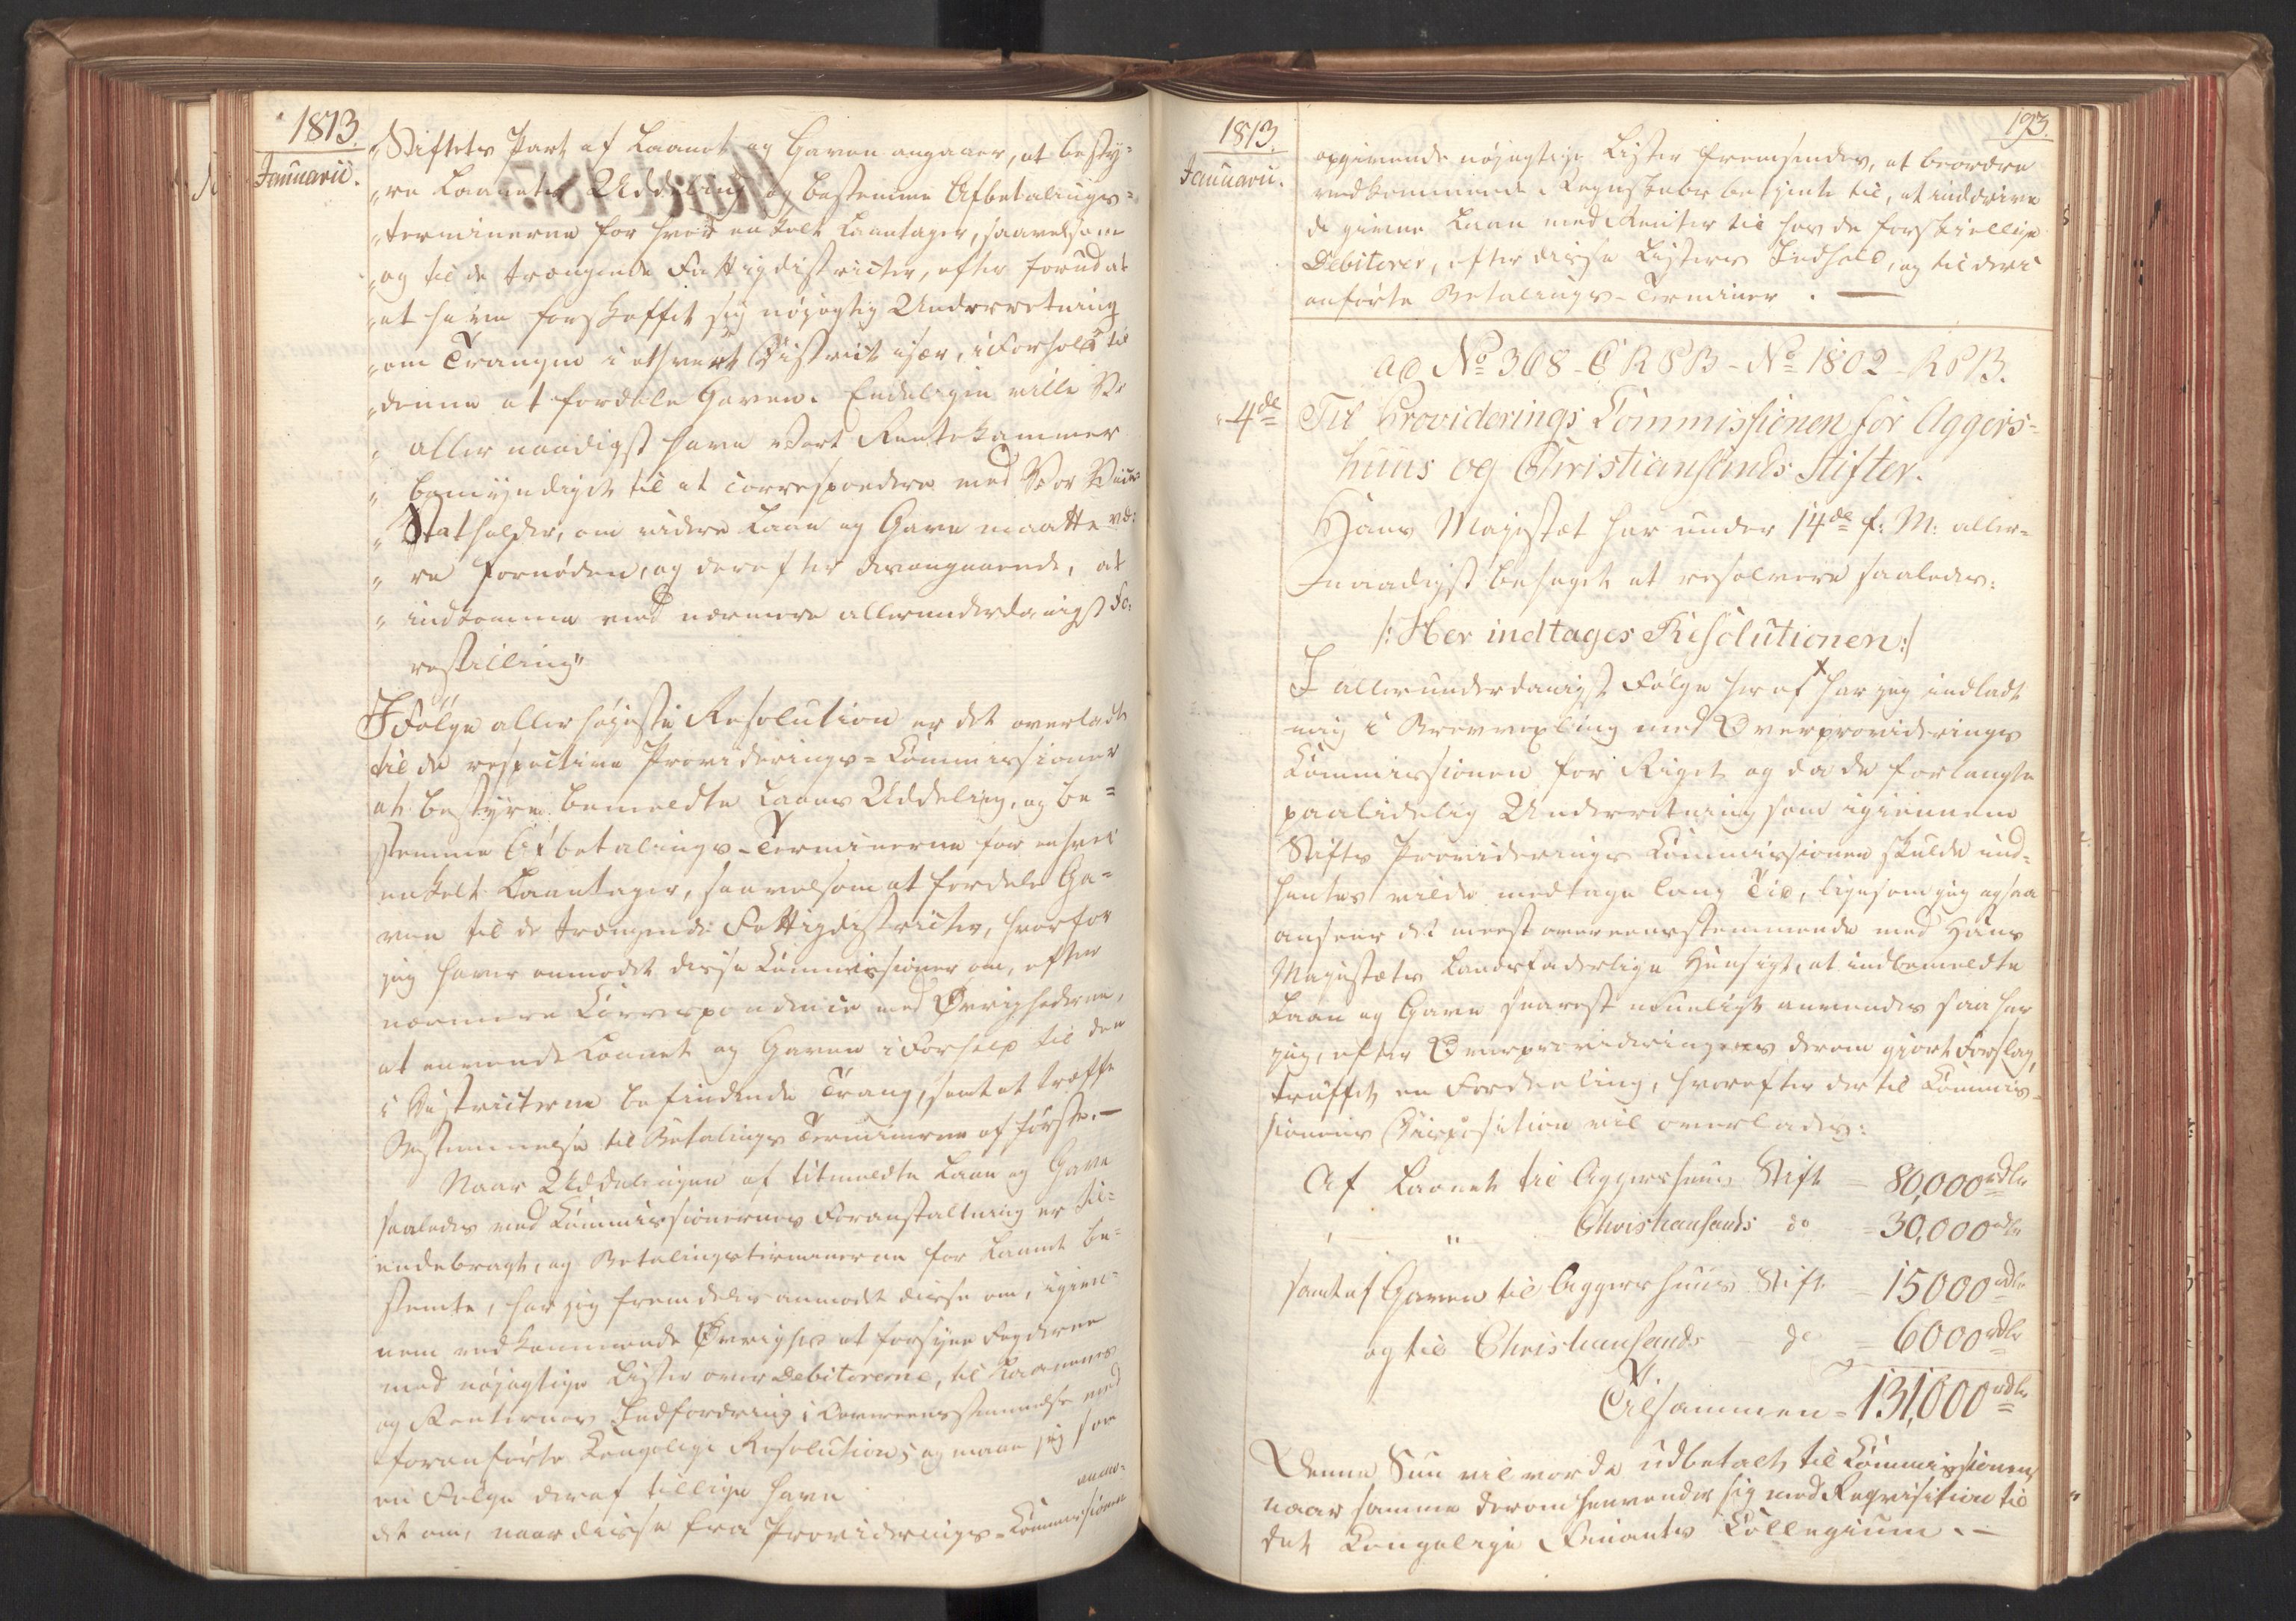 1813.
Januarii.
„Stiftets Part af Laanet og Gaven angaaer, at besty-
„re Laanets Uddeling og bestemme Afbetalings-
„terminerne for hver enkelt Laantager, saavelsom
„og til de trængende Fattigdistricter, efter forud at
„at have forskaffet sig nøjagtig Underretning
„om Trangen i ethvert District især, i Forhold til
„denne at fordele Gaven. Endeligen ville Vi
„allernaadigst have Vort Rentekammer
„bemyndiget til at correspondere med Vor Vice-
„Statholder, om videre Laan og Gave maatte væ-
„re fornøden, og derefter desangaaende, at
„indkomme med nærmere allerunderdanigst Fo-
restilling"
I Følge allerhøjeste Resolution er det overladt
til de respective Providerings-Commissioner
at bestyre bemeldte Laans Uddeling, og be-
stemme Afbetalings-Terminerne for enhver
enkelt Laantager, saavelsom at fordele Ga-
ven til de trængende Fattigdistricter, hvorfor
jeg haver anmodet disse Commissioner om, efter
nærmere Correspondence med Øvrighederne,
at anvende Laanet og Gaven i Forhold til den
i Districterne befindende Trang, samt at træffe
Bestemmelse til Betalings Terminerne af første.—
Naar Uddelingen af titmeldte Laan og Gave
saaledes ved Commissionernes Foranstaltning er til-
endebragt, og Betalingsterminerne for Laanet be-
stemte, har jeg fremdeles anmodet disse om, igien-
nem vedkommende Øvrighed at forsyne Fogderne
med nøjagtige Lister over Debitorerne, til Laanenes
og Renternes Indfordring i Overeensstemmelse med
foranførte Kongelige Resolution; og maae jeg som
en Følge deraf tillige have anmo-
det om, naar disse fra Providerings-Commissionen
1813.
193.
Januarii.
opgivende nøjagtige Lister fremsendes, at beordre
vedkommende Regnskabsbetjente til, at inddrive
de givne Laan med Renter til hos de forskiellige
Debitorer, efter disse Listers Indhold, og til deri
anførte Betalings-Terminer.—
ad No 368 - C R P B - No 1802 - R P B.
4de
Til Providerings Commissionen for Aggers-
huus og Christiansands Stifter.
Hans Majestæt har under 14de f: M: aller-
naadigst behaget at resolvere saaledes:
/: Her indtages Resolutionen :/
I allerunderdanigst Følge heraf x har jeg indladt
mig i Brevvexling med Overproviderings
Commissionen for Riget og da de forlangte
paalidelig Underretning som igiennem
Stifts Provideringscommissionen skulde ind-
hentes vilde medtage lang Tid, ligesom jeg ogsaa
anseer det meest overeensstemmende med Hans
Majestæts landsfaderlige Hensigt, at indbemeldte
Laan og Gave snarest mueligt anvendes saa har
jeg, efter Overprovideringens derom gjort Forslag,
truffet en Fordeeling, hvorefter der til Commis-
sionens Disposition vil overlades:
Af Laanet til Aggershuus Stift = 80,000 rdlr
" Christiansands do = 30,000 rdlr
samt af Gaven til Aggershuus Stift = 15000 rdlr
og til Christiansands do = 6000 rdlr
Tilsammen = 131,000 rdlr
Denne Sum vil vorde udbetalt til Commissionen,
naar samme derom henvender sig med Reqvisition til
det Kongelige Finants Collegium.—